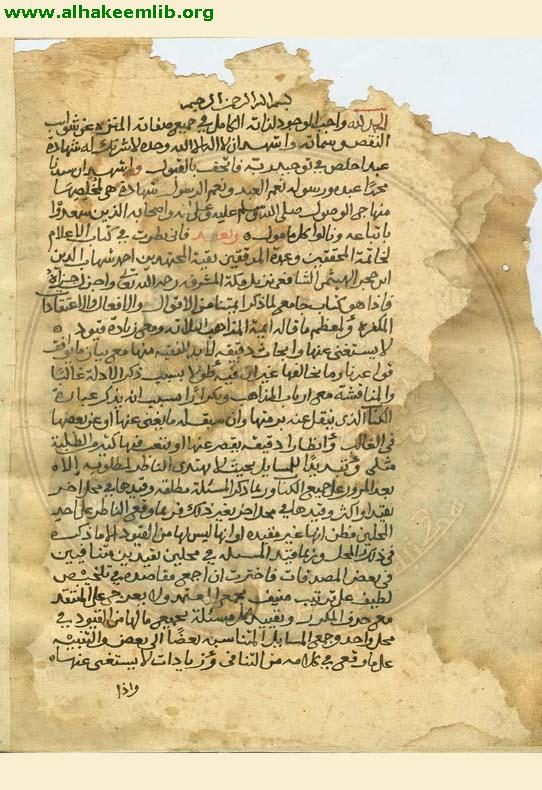 www.alhakeemlib.org
بسم الله الرحمن الرحيم
الحمد لله واجب الوجود لذاته الكامل في جميع صفاته المنزه عن شوايب
النقص وسماته واشهد ان لا اله الا الله وحده لا شريك له شهادة
عبد اخلص في توحيد ربه فاتحف بالقبول واشهد ان سيدنا
محمدا عبده ورسوله نعم العبد ونعم الرسول شهادة هي لمخلصها
منها حبر الوصول صلى الله وسلم عليه وعلى اله واصحابه الذين سعدوا
باتباعه ونالوا كل مامول وبعد فاني نظرت في كتاب الاعلام
لخاتمة المحققين وعمدة المدققين بقية المجتهدين احمد شهاب الدين
ابن حجر الهيتمي الشافعي نزيل مكة المشرفه رحمه الله تعالى واجزل اجزاه
فاذا هو كتاب جامع لما ذكر ايمتنا من الاقوال والافعال والاعتقادات
المكفره ولمعظم ما قاله ايمة المذاهب الثلاثه ومع زيادة قيود
لا يستغنى عنها وابحاث دقيقه لا بد للفقيه منها مع بيان ما يوافق
قواعدنا وما يخالفها غير ان فيه طولا بسبب ذكر الادلة غالبا
والمناقشة مع ارباب المذاهب وتكرارا بسبب ان يذكر عبارة
الكتاب الذي ينقل عنه برمتها وان سبق له ما يغني عنها او عن بعضها
في الغالب وانظارا دقيقه يقصر عنها او ينتفع فيها كثير الطلبة
مثلي وتبديدا للمسايل بحيث لا يهتدي الناظر لمطلوبه الا
بعد المرور على جميع الكتاب وربما ذكر المسئلة مطلقه وقيدها في محل اخر
بقيد او اكثر وقيدها في محل اخر بغير ذلك فربما وقع الناظر على احد
المحلين فظن انها غير مقيده او انها ليس لها من القيود الا ما ذكره
في ذلك المحل وربما قيد المسئله في محلين بقيدين متنافيين
في بعض المصدقات فاخترت ان اجمع مقاصده في تلخيص
لطيف على ترتيب منيف يجمع المعتمد ولا يعدرج على المنتقد
مع حذف المكرر وتقييد كل مسئلة بجميع ما لها من القيود في
محل واحد وجمع المسايل المتناسبه بعضها الى بعض والتنبيه
على ما وقع في كلامه من التنافي وزيادات لا يستغنى عنها
واذا